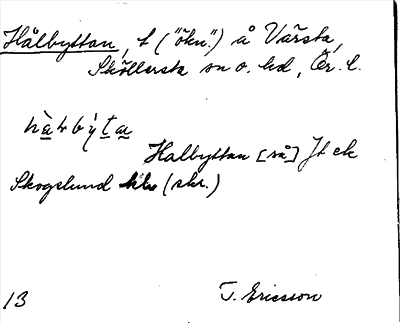 Hålbyttan, t ("ökn.") å Värsta,
Sköllersta sn o. hd, Ör. l.
hàḷbỳta
Halbyttan [så] Jt ek
Skogslund (skr.)
13 T. Ericsson